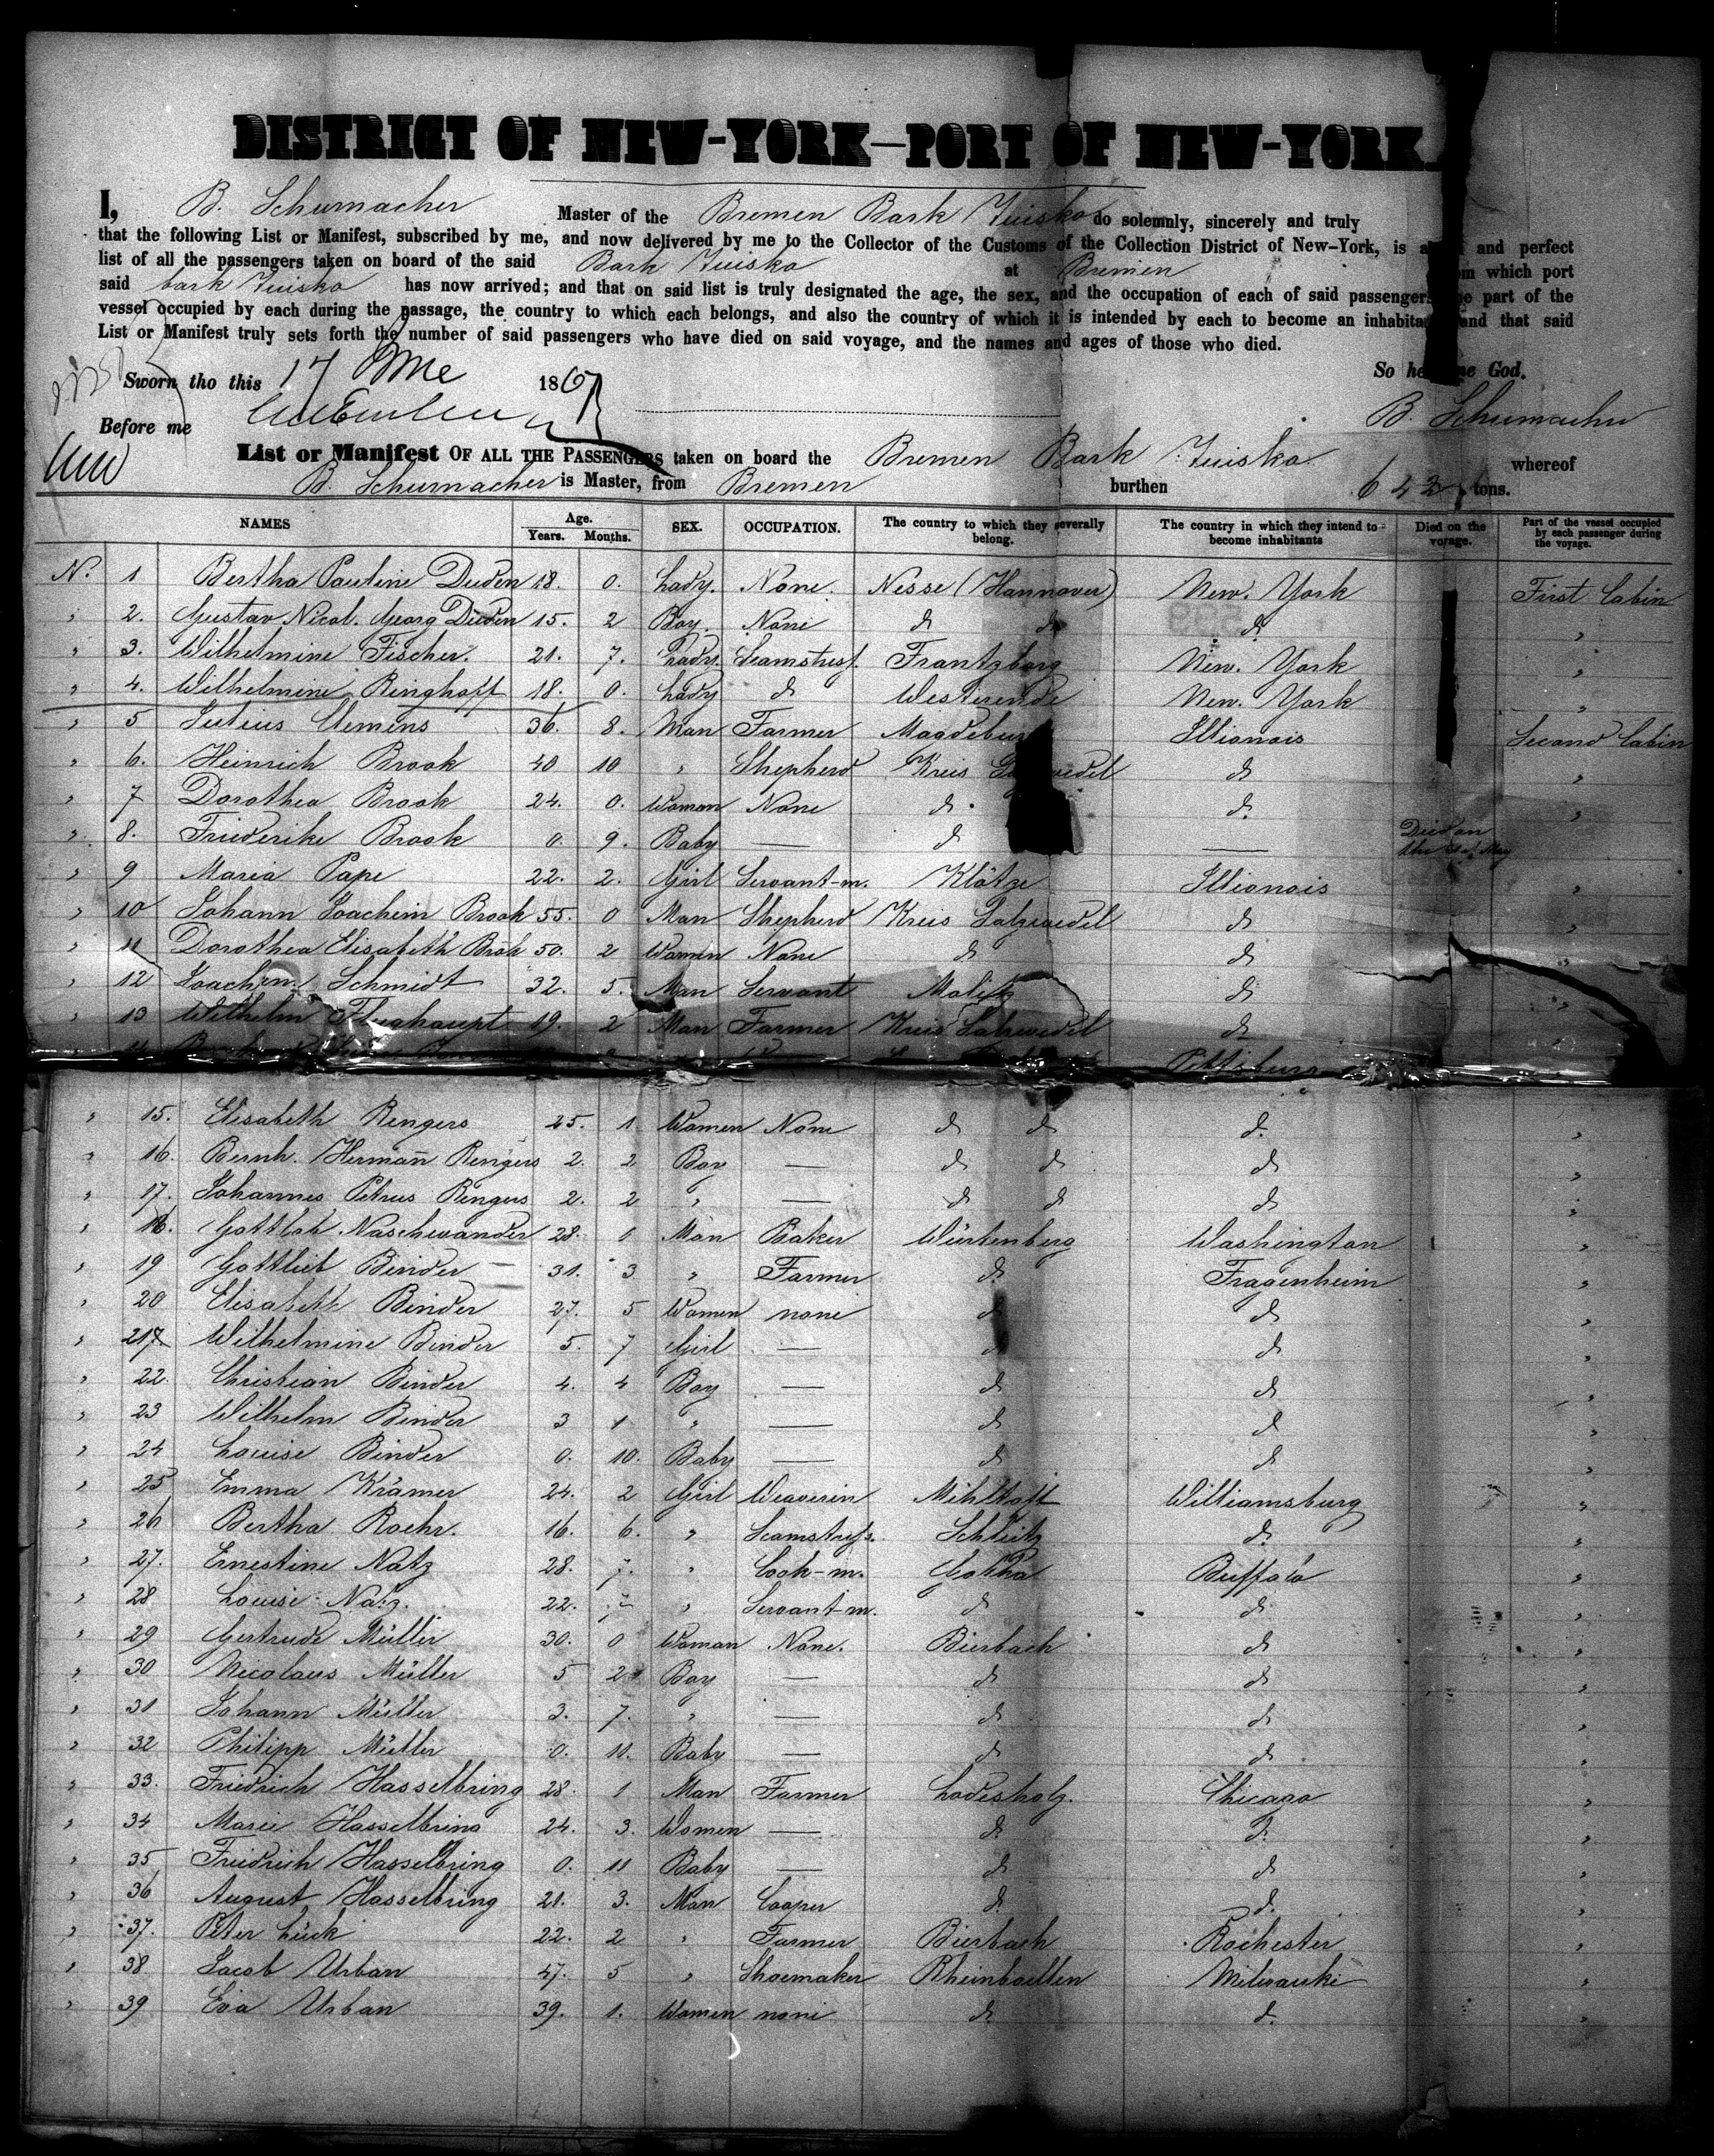 DISTRICT OF NEW-YORK—PORT OF NEW-YORK.
I, B. Schumacher Master of the Bremen Bark Tuisko do solemnly, sincerely and truly
that the following List or Manifest, subscribed by me, and now delivered by me to the Collector of the Customs of the Collection District of New-York, is a and perfect
list of all the passengers taken on board of the said Bark Tuisko at Bremen which port
said bark Tuisko has now arrived; and that on said list is truly designated the age, the sex, and the occupation of each of said passengers part of the
vessel occupied by each during the passage, the country to which each belongs, and also the country of which it is intended by each to become an inhabitant and that said
List or Manifest truly sets forth the number of said passengers who have died on said voyage, and the names and ages of those who died.
So he me God.
Sworn tho this 17 June 1867
B. Schumacher
Before me
List or Manifest OF ALL THE PASSENGERS taken on board the Bremen Bark Tuisko whereof
B. Schumacher is Master, from Bremen burthen 642 tons.
NAMES Age. Years. Months. SEX. OCCUPATION. The country to which they severally belong. The country in which they intend to become inhabitants Died on the voyage. Part of the vessel occupied by each passenger during the voyage.
N. 1 Bertha Pauline Duden 18. 0. Lady. None. Nesse (Hannover) New. York First Cabin
" 2. Gustav Nicol. Georg Duden 15. 2 Boy. None d d d "
" 3. Wilhelmine Fischer. 21. 7. Lady. Seamstress. Frantzburg New. York "
" 4. Wilhelmine Ringhoff 18. 0. Lady d Westerende New. York "
" 5 Julius Clemens 36. 8. Man Farmer Magdeburg Illionois Second Cabin
" 6. Heinrich Brook 40 10 " Shepherd Kreis Salzwedel d "
" 7 Dorothea Brook 24. 0. Woman None d. d. "
" 8. Friederike Brook 0. 9. Baby — d — Died on the May
" 9 Maria Pape 22. 2. Girl Servant-m. Klötze Illionois "
" 10 Johann Joachim Brook 55. 0 Man Shepherd Kreis Salzwedel d "
" 11 Dorothea Elisabeth Brok 50. 2 Women None d d "
" 12 Joachim Schmidt 32. 5. Man Servant d "
" 13 Wilhelm Flughaupt 19. 2 Man Farmer Kreis Salzwedel d "
Pittsburg
" 15. Elisabeth Rengers 25. 1 Women None d d d. "
" 16. Bernh. Hermann Rengers 2. 2 Boy — d d d "
" 17. Johannes Petrus Rengers 2. 2 " — d d d "
" 18. Gottlob Naschwander 28. 0 Man Baker Würtenberg Washington "
" 19 Gottlieb Binder 31. 3 " Farmer d Fragenheim "
" 20 Elisabeth Binder 27. 5 Women none d d "
" 21 Wilhelmine Binder 5. 7 Girl — d d "
" 22. Christian Binder 4. 4 Boy — d d "
" 23 Wilhelm Binder 3 1 " — d d "
" 24 Louise Binder 0. 10. Baby — d d "
" 25 Emma Krämer 24. 2 Girl Weaverin Williamsburg "
" 26 Bertha Roehr. 16. 6. " Seamstress. Schleitz d. "
" 27. Ernestine Natz 28. 7. " Cook-m. Gotha Buffalo "
" 28 Louise Natz. 22. 7 " Servant-m. d d "
" 29 Gertrude Müller 30. 0 Woman None. Bierbach d "
" 30 Nicolaus Müller 5 2 Boy — d d "
" 31 Johann Müller 3. 7. " — d d "
" 32 Philipp Müller 0. 11. Baby — d d "
" 33. Friedrich Hasselbring 28. 1 Man Farmer Lodesholz. Chicago "
" 34 Marie Hasselbring 24. 3. Women — d. d. "
" 35 Friedrich Hasselbring 0. 11 Baby — d d "
" 36 August Hasselbring 21. 3. Man Cooper d. d. "
" 37. Peter Lück 22. 2 " Farmer Bierbach Rochester "
" 38 Jacob Urban 47. 5 " Shoemaker Rheinboellen Milwauki "
" 39 Eva Urban 39. 1. Women none d. d. "